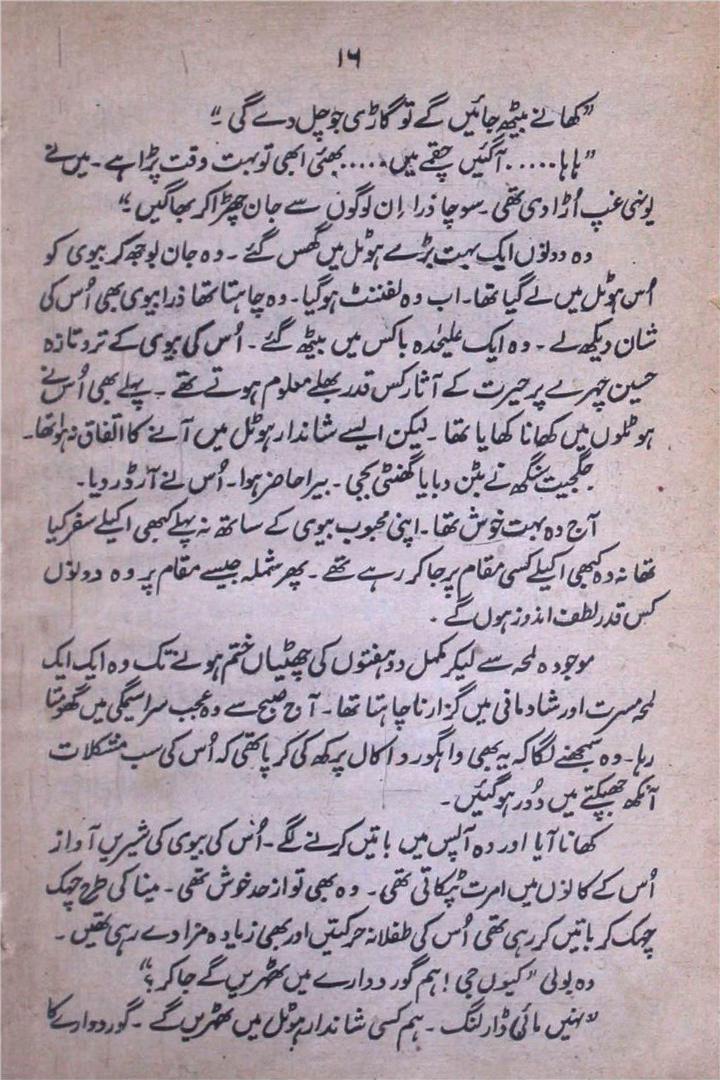 ۱۶
”کھانے بیٹھ جائیں گے تو گاڑی جو چل دے گی ۔“
”ہاہا..... آگئیں چقمے میں..... بھئی ابھی تو بہت وقت پڑا ہے ۔ میں نے
یونہی غپ اُڑا دی تھی ۔ سوچا ذرا اِن لوگوں سے جان چھڑا کر بھاگیں ۔“
وہ دونوں ایک بہت بڑے ہوٹل میں گھس گئے ۔ وہ جان بوجھ کر بیوی کو
اُس ہوٹل میں لے گیا تھا ۔ اب وہ لفٹننٹ ہوگیا ۔ وہ چاہتا تھا ذرا بیوی بھی اُس کی
شان دیکھ لے ۔ وہ ایک علیحٰدہ باکس میں بیٹھ گئے ۔ اُس کی بیوی کے تر و تازہ
حسین چہرے پر حیرت کے آثار کس قدر بھلے معلوم ہوتے تھے ۔ پہلے بھی اُس نے
ہوٹلوں میں کھانا کھایا تھا ۔ لیکن ایسے شاندار ہوٹل میں آنے کا اتفاق نہ ہوا تھا ۔
جگجیت سنگھ نے بٹن دبایا گھنٹی بجی ۔ بیرا حاضر ہوا ۔ اُس نے آرڈر دیا ۔
آج وہ بہت خوش تھا ۔ اپنی محبوب بیوی کے ساتھ نہ پہلے کبھی اکیلے سفر کیا
تھا نہ وہ کبھی اکیلے کسی مقام پر جا کر رہے تھے ۔ پھر شملہ جیسے مقام پر وہ دونوں
کس قدر لطف اندوز ہوں گے ۔
موجودہ لمحہ سے لیکر مکمل دو ہفتوں کی چھٹیاں ختم ہونے تک وہ ایک ایک
لمحہ مسرت اور شادمانی میں گزارنا چاہتا تھا ۔ آج صبح سے وہ عجب سراسیمگی میں گھومتا
رہا ۔ وہ سمجھنے لگا کہ یہ بھی واہگورو اکال پرکھ کی کرپا تھی کہ اُس کی سب مشکلات
آنکھ جھپکتے میں دُور ہوگئیں ۔
کھانا آیا اور وہ آپس میں باتیں کرنے لگے ۔ اُس کی بیوی کی شیریں آواز
اُس کے کانوں میں امرت ٹپکاتی تھی ۔ وہ بھی تو ازحد خوش تھی ۔ مینا کی طرح چہک
چہک کر باتیں کر رہی تھی اُس کی طفلانہ حرکتیں اور بھی زیادہ مزا دے رہی تھیں ۔
وہ بولی ”کیوں جی ! ہم گوردوارے میں ٹھہریں گے جا کر ؟“
”نہیں مائی ڈارلنگ ۔ ہم کسی شاندار ہوٹل میں ٹھہریں گے ۔ گوردوارے کا